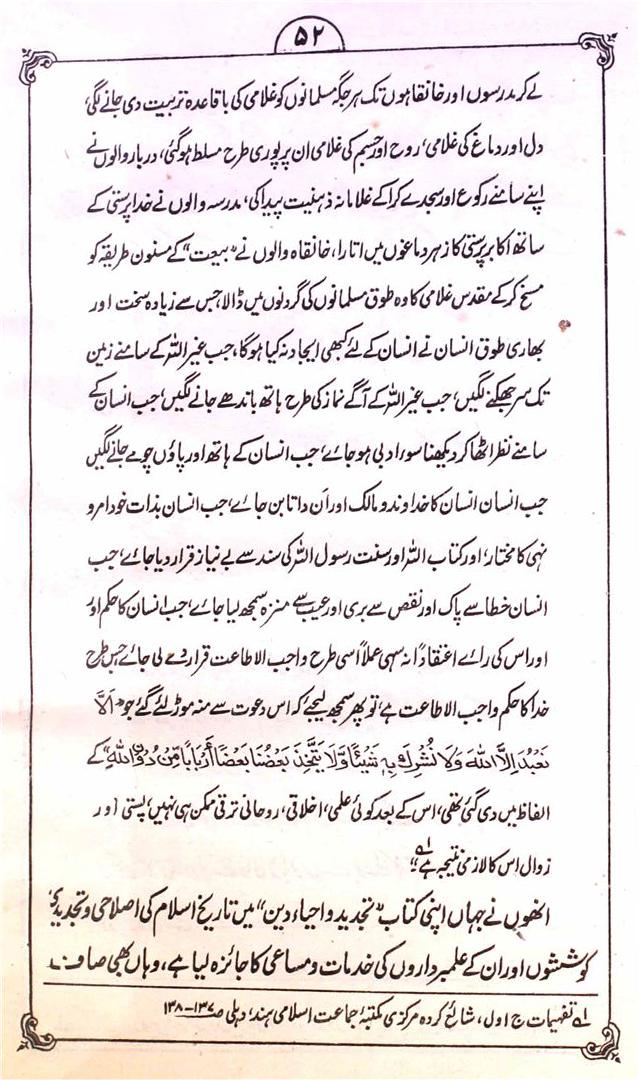 ۵۲
لے کر مدرسوں اور خانقاہوں تک ہر جگہ مسلمانوں کو غلامی کی باقاعدہ تربیت دی جانے لگی،
دل اور دماغ کی غلامی، روح اور جسم کی غلامی ان پر پوری طرح مسلط ہوگئی، دربار والوں نے
اپنے سامنے رکوع اور سجدے کرا کے غلامانہ ذہنیت پیدا کی، مدرسہ والوں نے خدا پرستی کے
ساتھ اکابر پرستی کا زہر دماغوں میں اتارا، خانقاہ والوں نے "بیعت" کے مسنون طریقہ کو
مسخ کر کے مقدس غلامی کا وہ طوق مسلمانوں کی گردنوں میں ڈالا جس سے زیادہ سخت اور
بھاری طوق انسان نے انسان کے لئے کبھی ایجاد نہ کیا ہوگا، جب غیر اللہ کے سامنے زمین
تک سر جھکنے لگیں، جب غیر اللہ کے آگے نماز کی طرح ہاتھ باندھے جانے لگیں، جب انسان کے
سامنے نظر اٹھا کر دیکھنا سوء ادبی ہو جائے، جب انسان کے ہاتھ اور پاؤں چومے جانے لگیں
جب انسان انسان کا خداوند و مالک اور اَن داتا بن جائے، جب انسان بذات خود امر و
نہی کا مختار، اور کتاب اللہ اور سنت رسول اللہ کی سند سے بے نیاز قرار دیا جائے، جب
انسان خطا سے پاک اور نقص سے بری اور عیب سے منزہ سمجھ لیا جائے، جب انسان کا حکم اور
اور اس کی رائے اعتقاداً نہ سہی عملاً اسی طرح واجب الاطاعت قرار دے لی جائے جس طرح
خدا کا حکم واجب الاطاعت ہے، تو پھر سمجھ لیجئے کہ اس دعوت سے منہ موڑ لئے گئے جو "اَلَّا
نَعْبُدَ اِلَّا اللّٰهَ وَلَا نُشْرِكَ بِهٖ شَيْئًا وَّلَا يَتَّخِذَ بَعْضُنَا بَعْضًا اَرْبَابًا مِّنْ دُوْنِ اللّٰهِ" کے
الفاظ میں دی گئی تھی، اس کے بعد کوئی علمی، اخلاقی، روحانی ترقی ممکن ہی نہیں، پستی اور
زوال اس کا لازمی نتیجہ ہے لہ"
انھوں نے جہاں اپنی کتاب "تجدید و احیاء دین" میں تاریخ اسلام کی اصلاحی و تجدیدی
کوششوں اور ان کے علمبرداروں کی خدمات و مساعی کا جائزہ لیا ہے، وہاں بھی صاف
لہ تفہیمات ج اول، شائع کردہ مرکزی مکتبۂ جماعت اسلامی ہند، دہلی ص ۱۳۷–۱۳۸